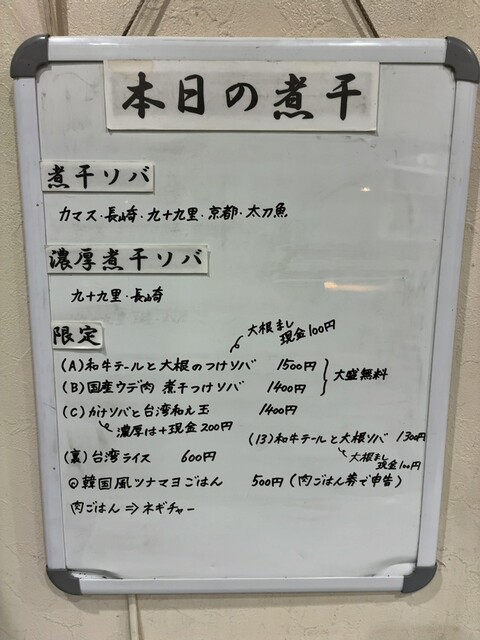 本日の煮干
煮干ソバ
カマス・長崎・九十九里・京都・太刀魚
濃厚煮干ソバ
九十九里・長崎
限定
大根まし
現金100円
(A)和牛テールと大根のつけソバ 1500円
(B)国産ウデ肉 煮干つけソバ 1400円
大盛無料
(C)かけソバと台湾和え玉 1400円
濃厚は+現金200円
(13)和牛テールと大根ソバ 1300円
大根まし
現金100円
(裏)台湾ライス 600円
◎韓国風ツナマヨごはん 500円(肉ごはん券で申告)
肉ごはん⇒ネギチャー